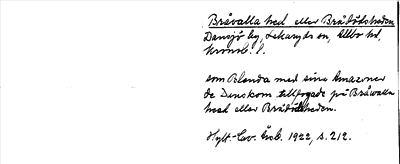 Bråvalla hed eller Brådödsheden
Dansjö by, Lekaryds sn, Allbo hd,
Kronob. l.
som Blenda med sina Amazoner
de Danskom tillfogade på Bråwalla
head eller Brådödsheden.
Hylt.-Cav. Årsb. 1922, s. 212.